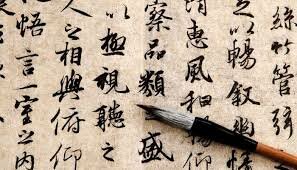 絲竹管弦
足以暢叙幽情
清惠風和暢
察品類之盛
以極視聽之
人之相與俯仰
悟言一室之內